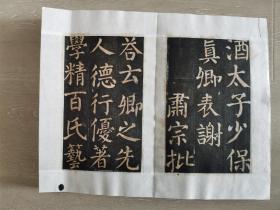 酒太子少保
真卿表謝
肅宗批
答云卿之先
人德行優著
學精百氏藝